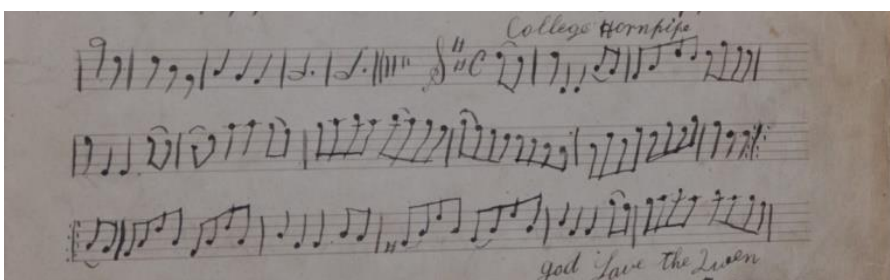 College Hornpipe
god save the Queen